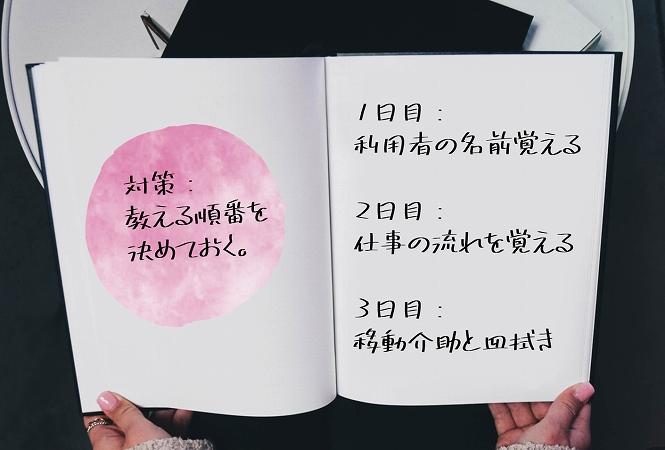 対策：
教える順番を
決めておく。
1日目：
利用者の名前覚える
2日目：
仕事の流れを覚える
3日目：
移動介助と皿拭き